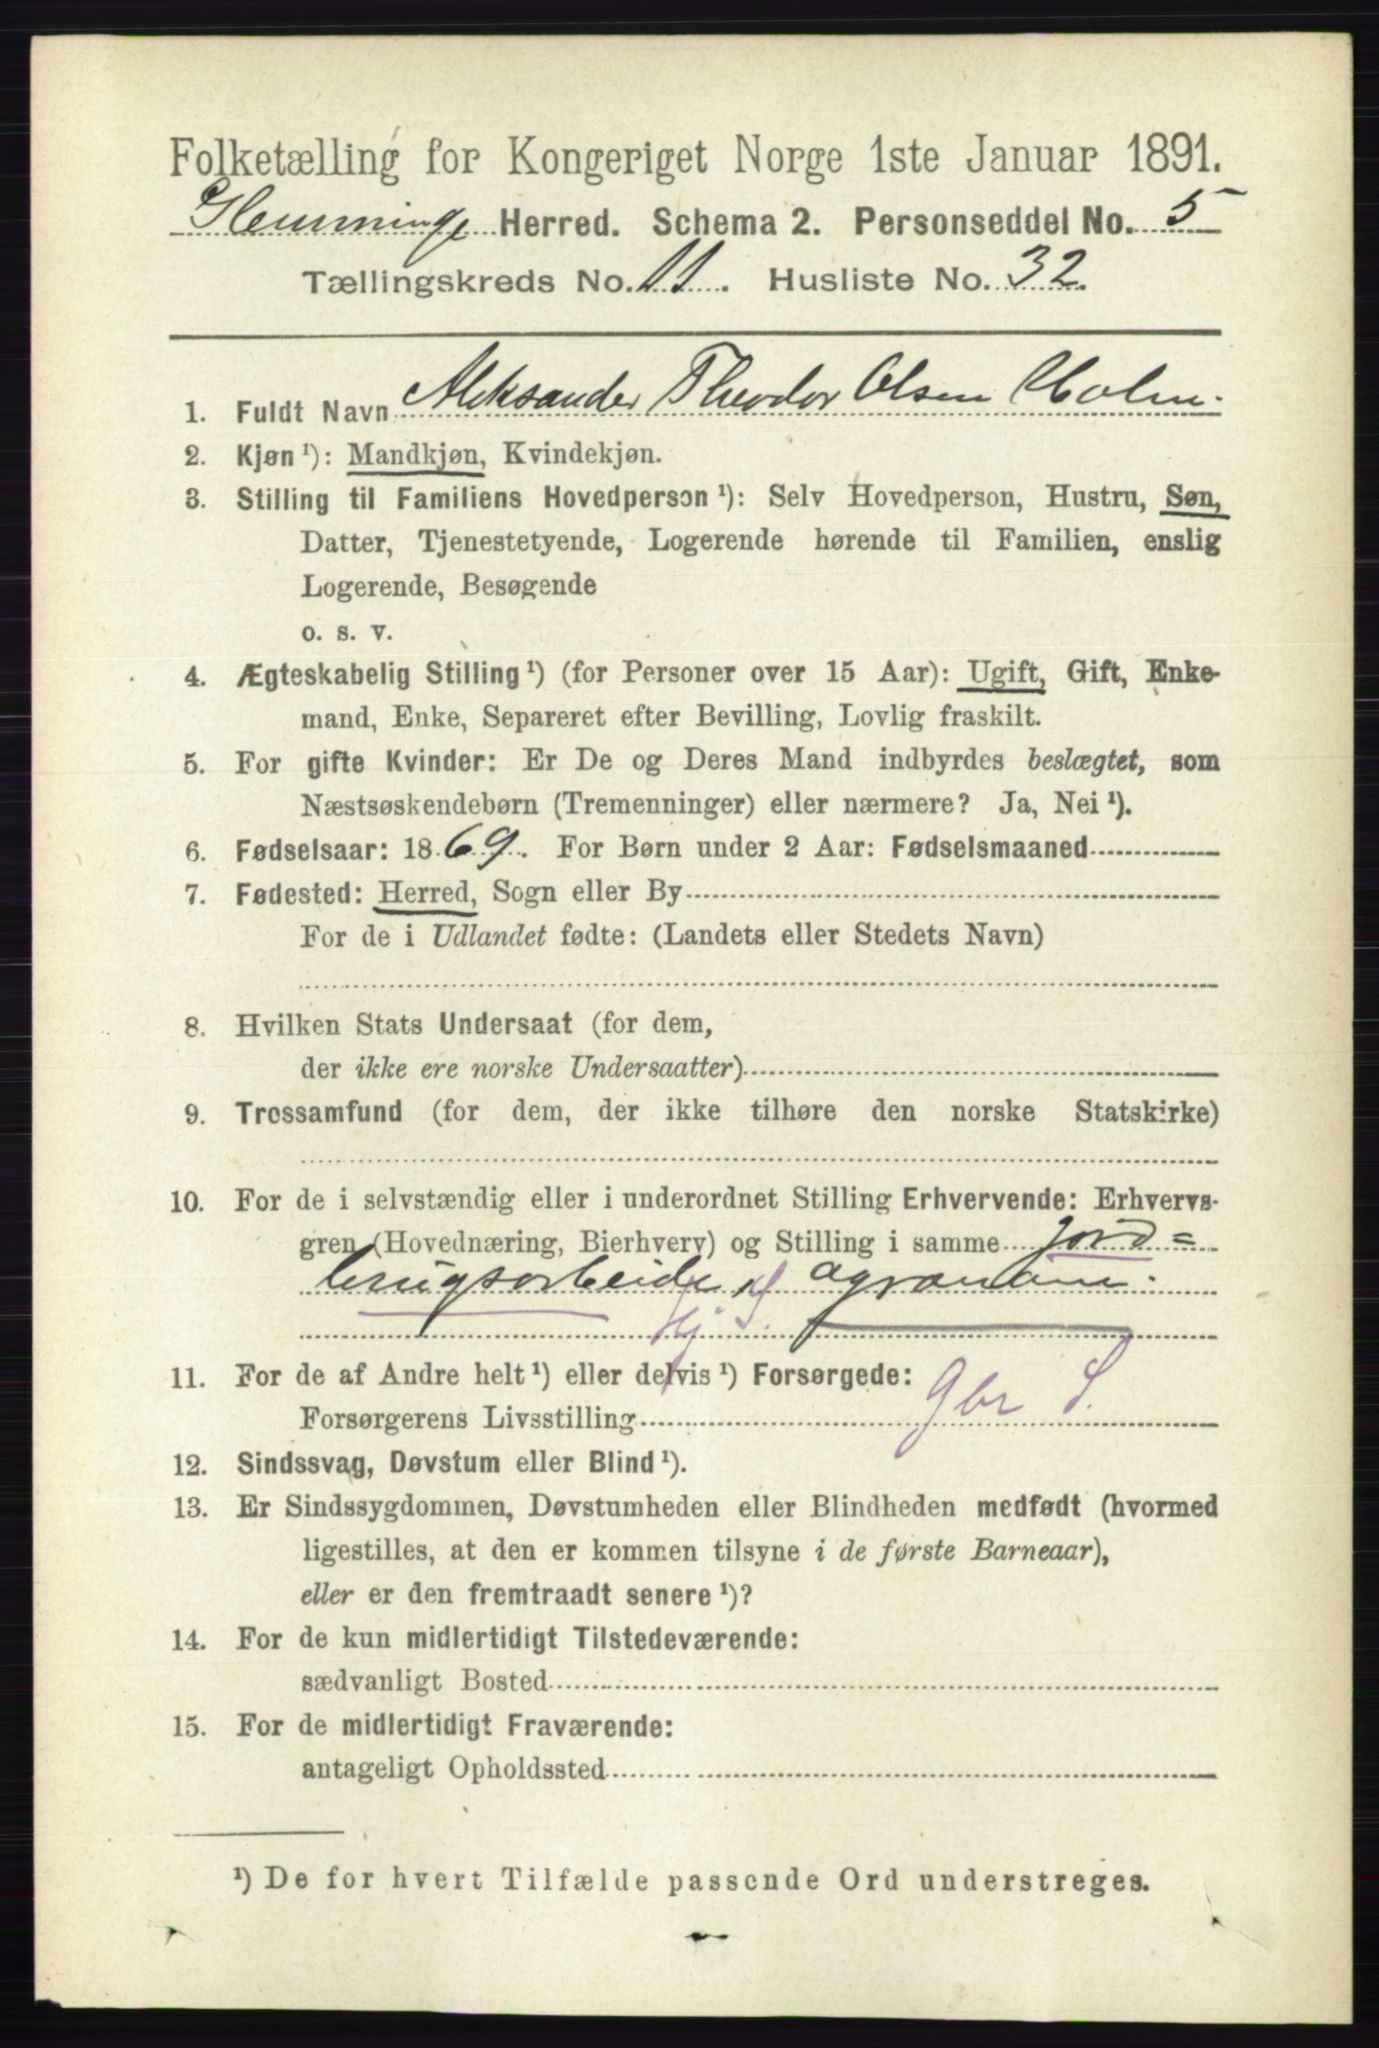 Folketælling for Kongeriget Norge 1ste Januar 1891.
Glemminge Herred. Schema 2. Personseddel No. 5
Tællingskreds No. 11. Husliste No. 32.
1. Fuldt Navn Aleksander Theodor Olsen Holm.
2. Kjøn ¹): Mandkjøn, Kvindekjøn.
3. Stilling til Familiens Hovedperson ¹): Selv Hovedperson, Hustru, Søn,
Datter, Tjenestetyende, Logerende hørende til Familien, enslig
Logerende, Besøgende
o. s. v.
4. Ægteskabelig Stilling ¹) (for Personer over 15 Aar): Ugift, Gift, Enke-
mand, Enke, Separeret efter Bevilling, Lovlig fraskilt.
5. For gifte Kvinder: Er De og Deres Mand indbyrdes beslægtet, som
Næstsøskendebørn (Tremenninger) eller nærmere? Ja, Nei ¹).
6. Fødselsaar: 1869. For Børn under 2 Aar: Fødselsmaaned
7. Fødested: Herred, Sogn eller By
For de i Udlandet fødte: (Landets eller Stedets Navn)
8. Hvilken Stats Undersaat (for dem,
der ikke ere norske Undersaatter)
9. Trossamfund (for dem, der ikke tilhøre den norske Statskirke)
10. For de i selvstændig eller i underordnet Stilling Erhvervende: Erhvervs-
gren (Hovednæring, Bierhverv) og Stilling i samme Jord=
brugsarbeide agronom.
11. For de af Andre helt ¹) eller delvis ¹) Forsørgede:
Forsørgerens Livsstilling Gbr S.
12. Sindssvag, Døvstum eller Blind ¹).
13. Er Sindssygdommen, Døvstumheden eller Blindheden medfødt (hvormed
ligestilles, at den er kommen tilsyne i de første Barneaar),
eller er den fremtraadt senere ¹)?
14. For de kun midlertidigt Tilstedeværende:
sædvanligt Bosted
15. For de midlertidigt Fraværende:
antageligt Opholdssted
¹) De for hvert Tilfælde passende Ord understreges.